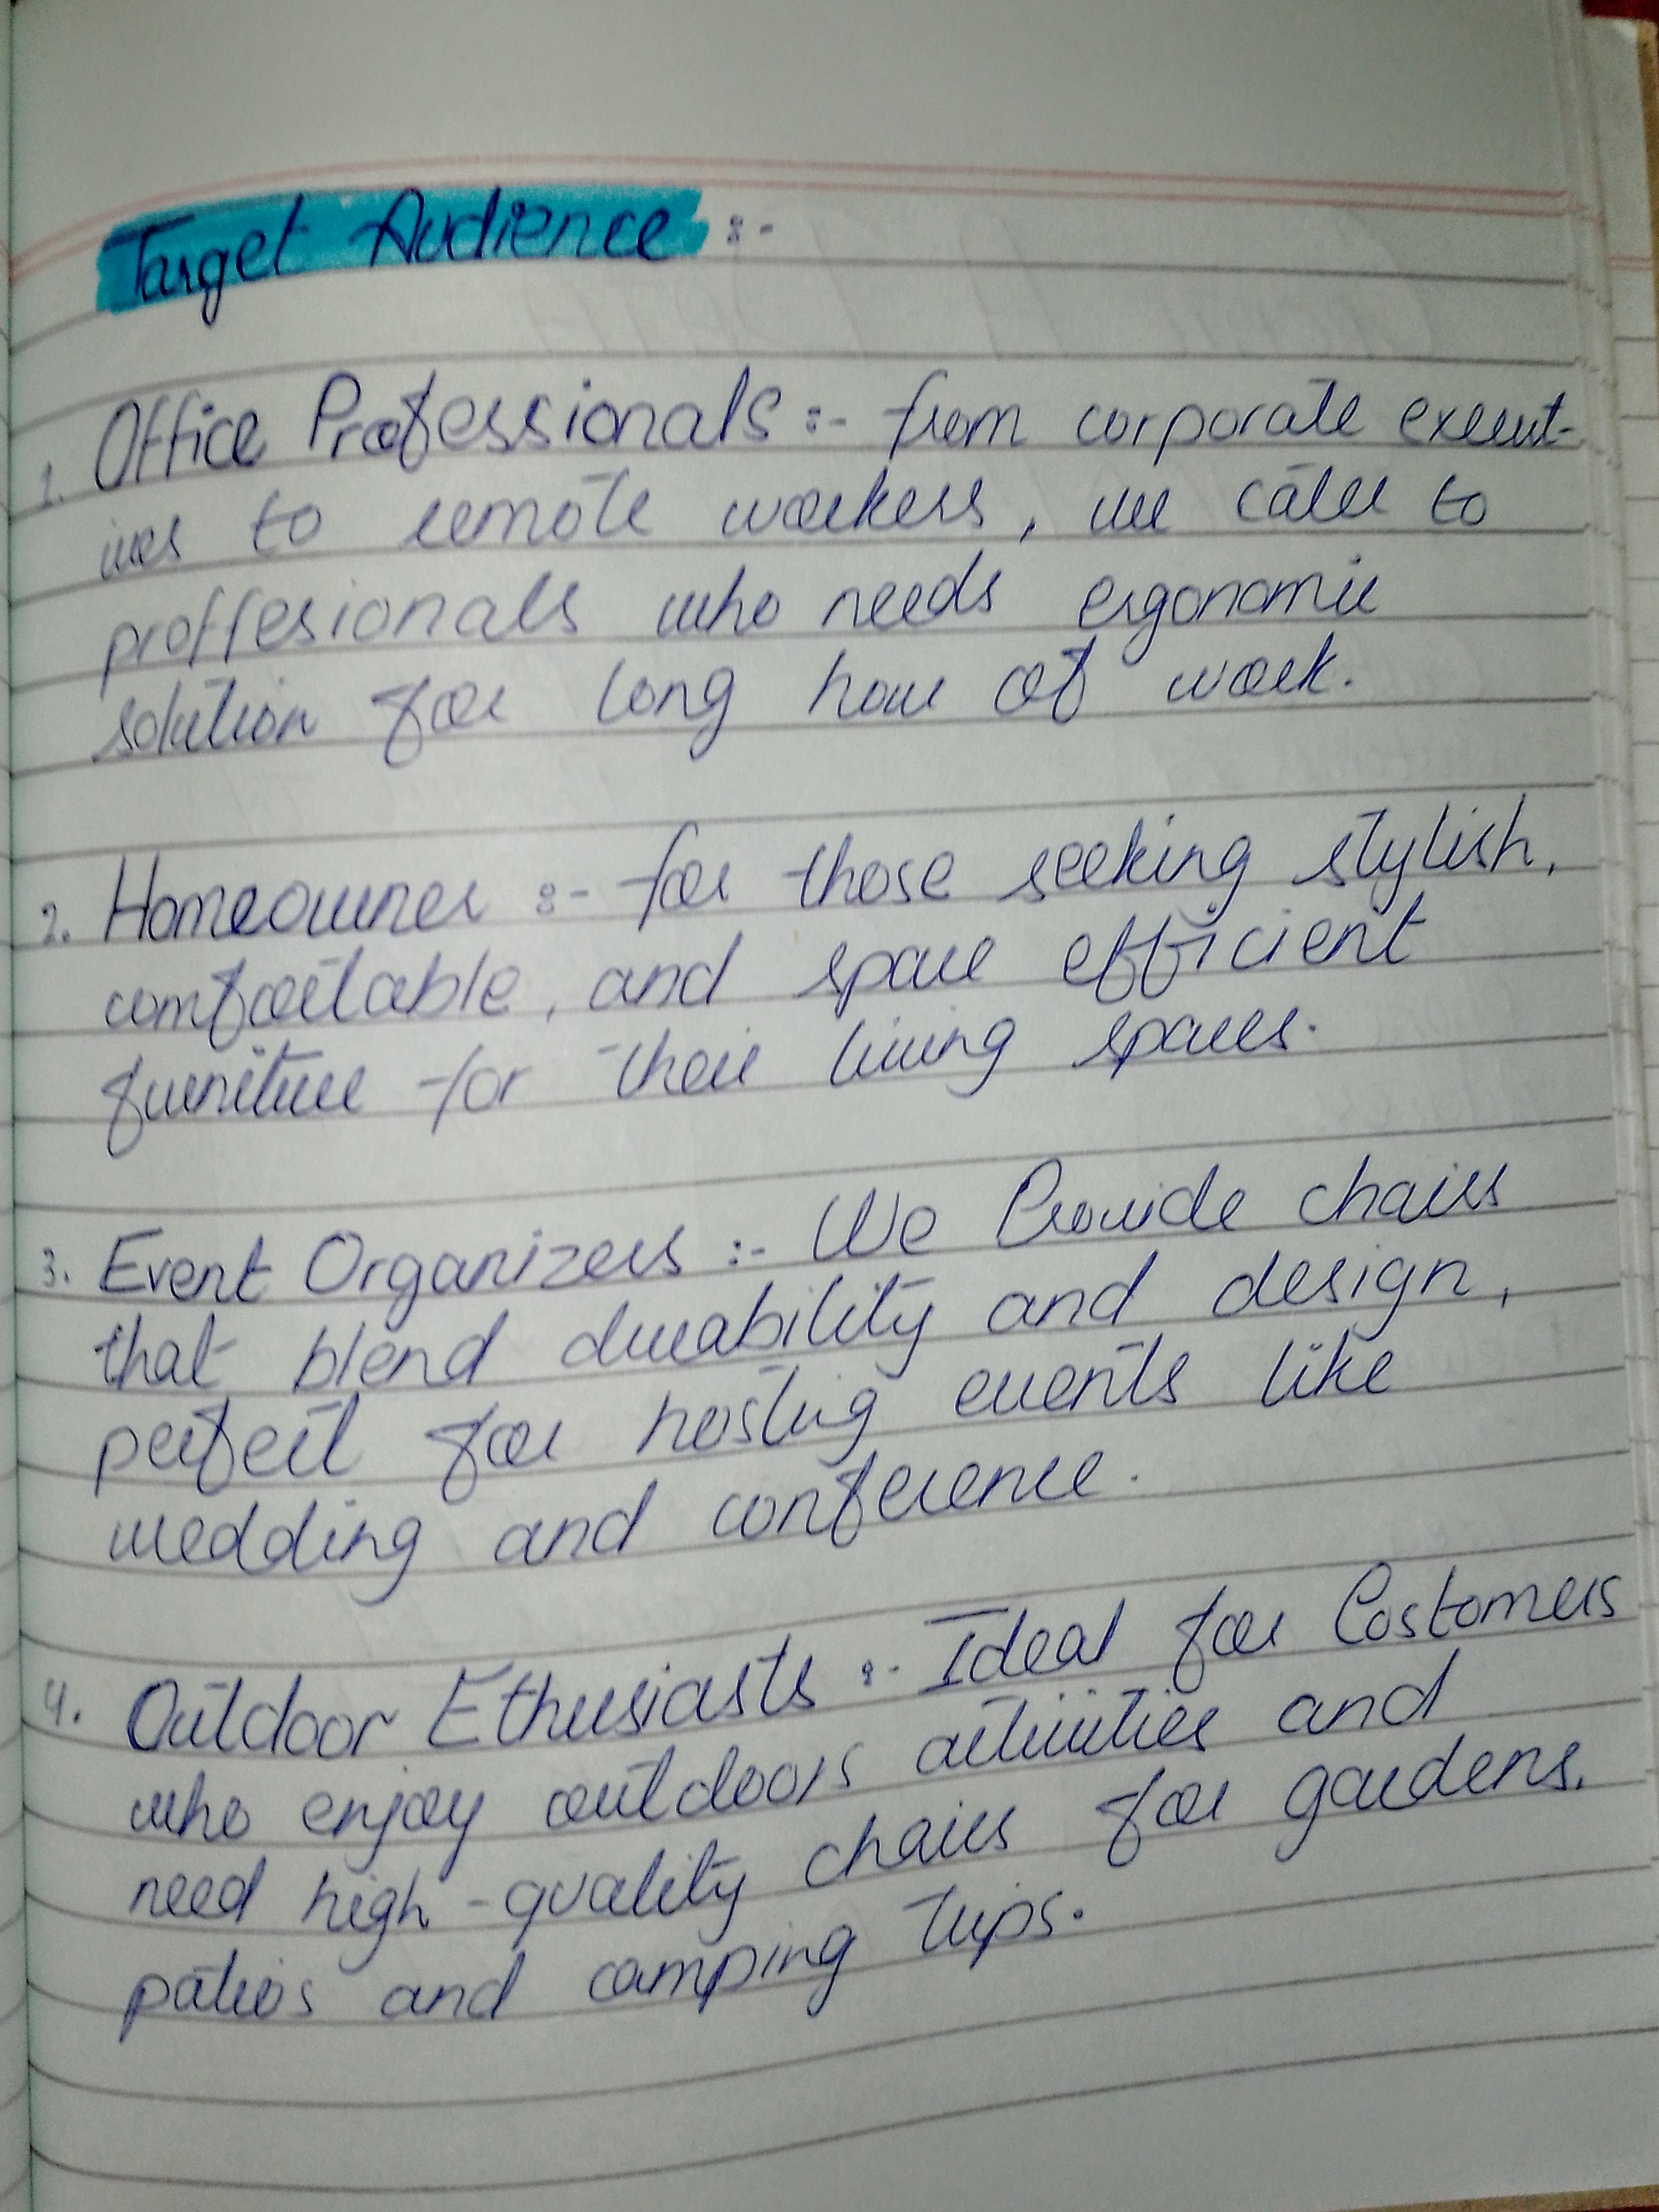 Target Audience :-
1. Office Professionals :- from corporate execut-
ives to remote workers, we cater to
proffesionals who needs ergonomic
solution for long hour of work.
2. Homeowner :- for those seeking stylish,
comfortable, and space efficient
furniture for their living spaces.
3. Event Organizers :- We Provide chairs
that blend durability and design,
perfect for hosting events like
wedding and conference.
4. Outdoor Ethusiasts :- Ideal for Costomers
who enjoy outdoors activities and
need high-quality chairs for gardens,
patios and camping trips.